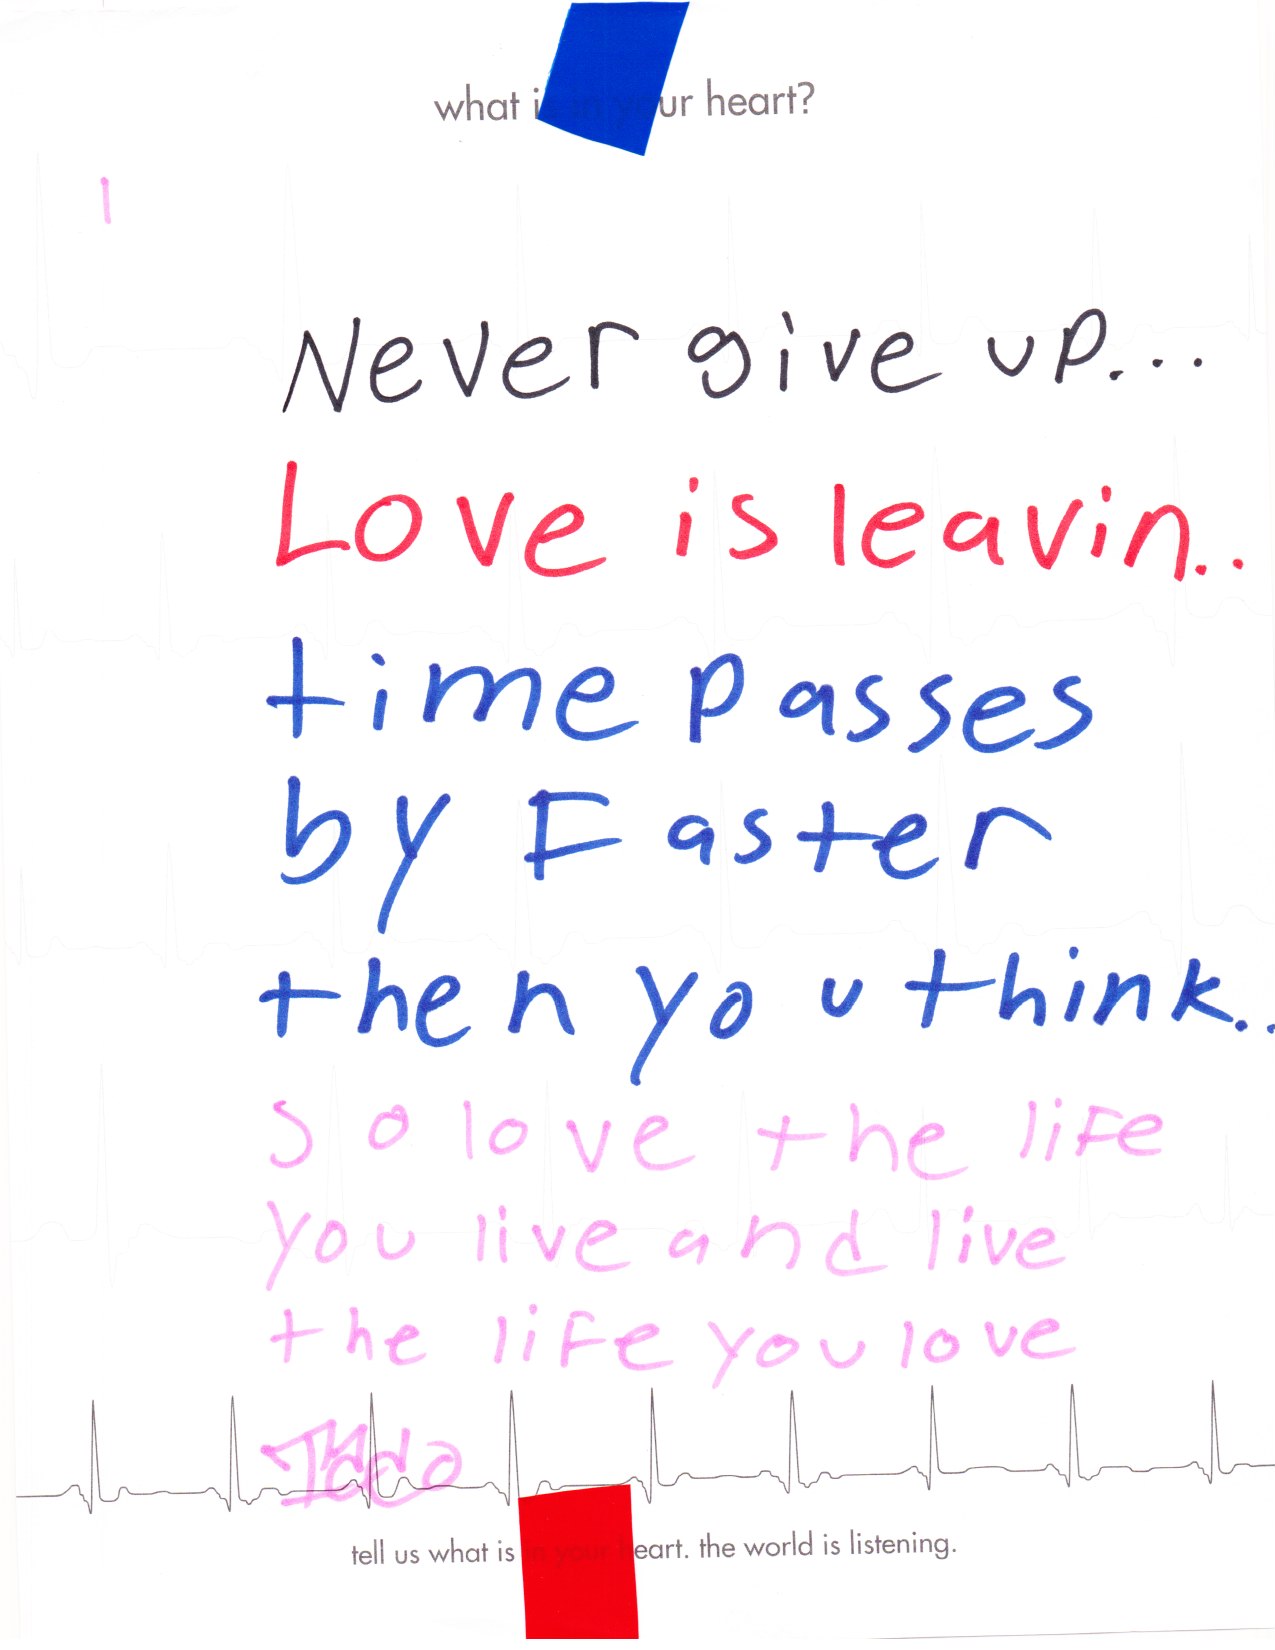 what is in your heart?
I
Never give up...
Love is leavin..
time passes
by Faster
then you think..
So love the life
you live and live
the life you love
tell us what is in your heart. the world is listening.